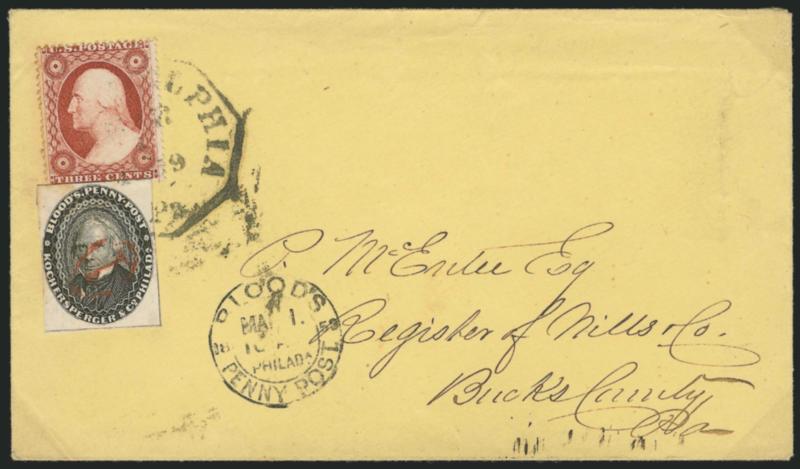 U.S. POSTAGE
THREE CENTS
LPHIA
PA
BLOOD'S. PENNY. POST
KOCHERSPERGER & CO. PHILADA
BLOOD'S
MA 1.
28 ½ S 6
PHILADA
PENNY POST
P. McEntee Esq
Register of Wills & Co.
Bucks County
Pa